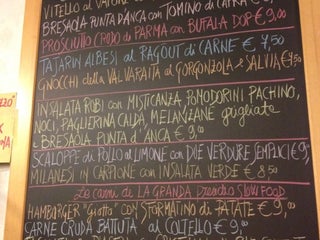 VITELLO al VAPORE con
BRESAOLA PUNTA D'ANCA con TOMINO di CAPRA € 9,
PROSCIUTTO CRUDO di PARMA con BUFALA DOP € 9,00
TAJARIN ALBESI al RAGOUT di CARNE € 7,50
GNOCCHI della VAL VARAITA al GORGONZOLA e SALVIA € 7,50
INSALATA RUBI con MISTICANZA, POMODORINI PACHINO,
NOCI, PAGLIERINA CALDA, MELANZANE grigliate
e BRESAOLA PUNTA d'ANCA € 9,00
SCALOPPE di POLLO al LIMONE con DUE VERDURE SEMPLICI € 9,
MILANESI in CARPIONE con INSALATA VERDE € 8,50
Le carni de LA GRANDA Presidio SLOW FOOD
HAMBURGER "Giotto" con SFORMATINO di PATATE € 9,
CARNE CRUDA BATTUTA al COLTELLO € 9,00